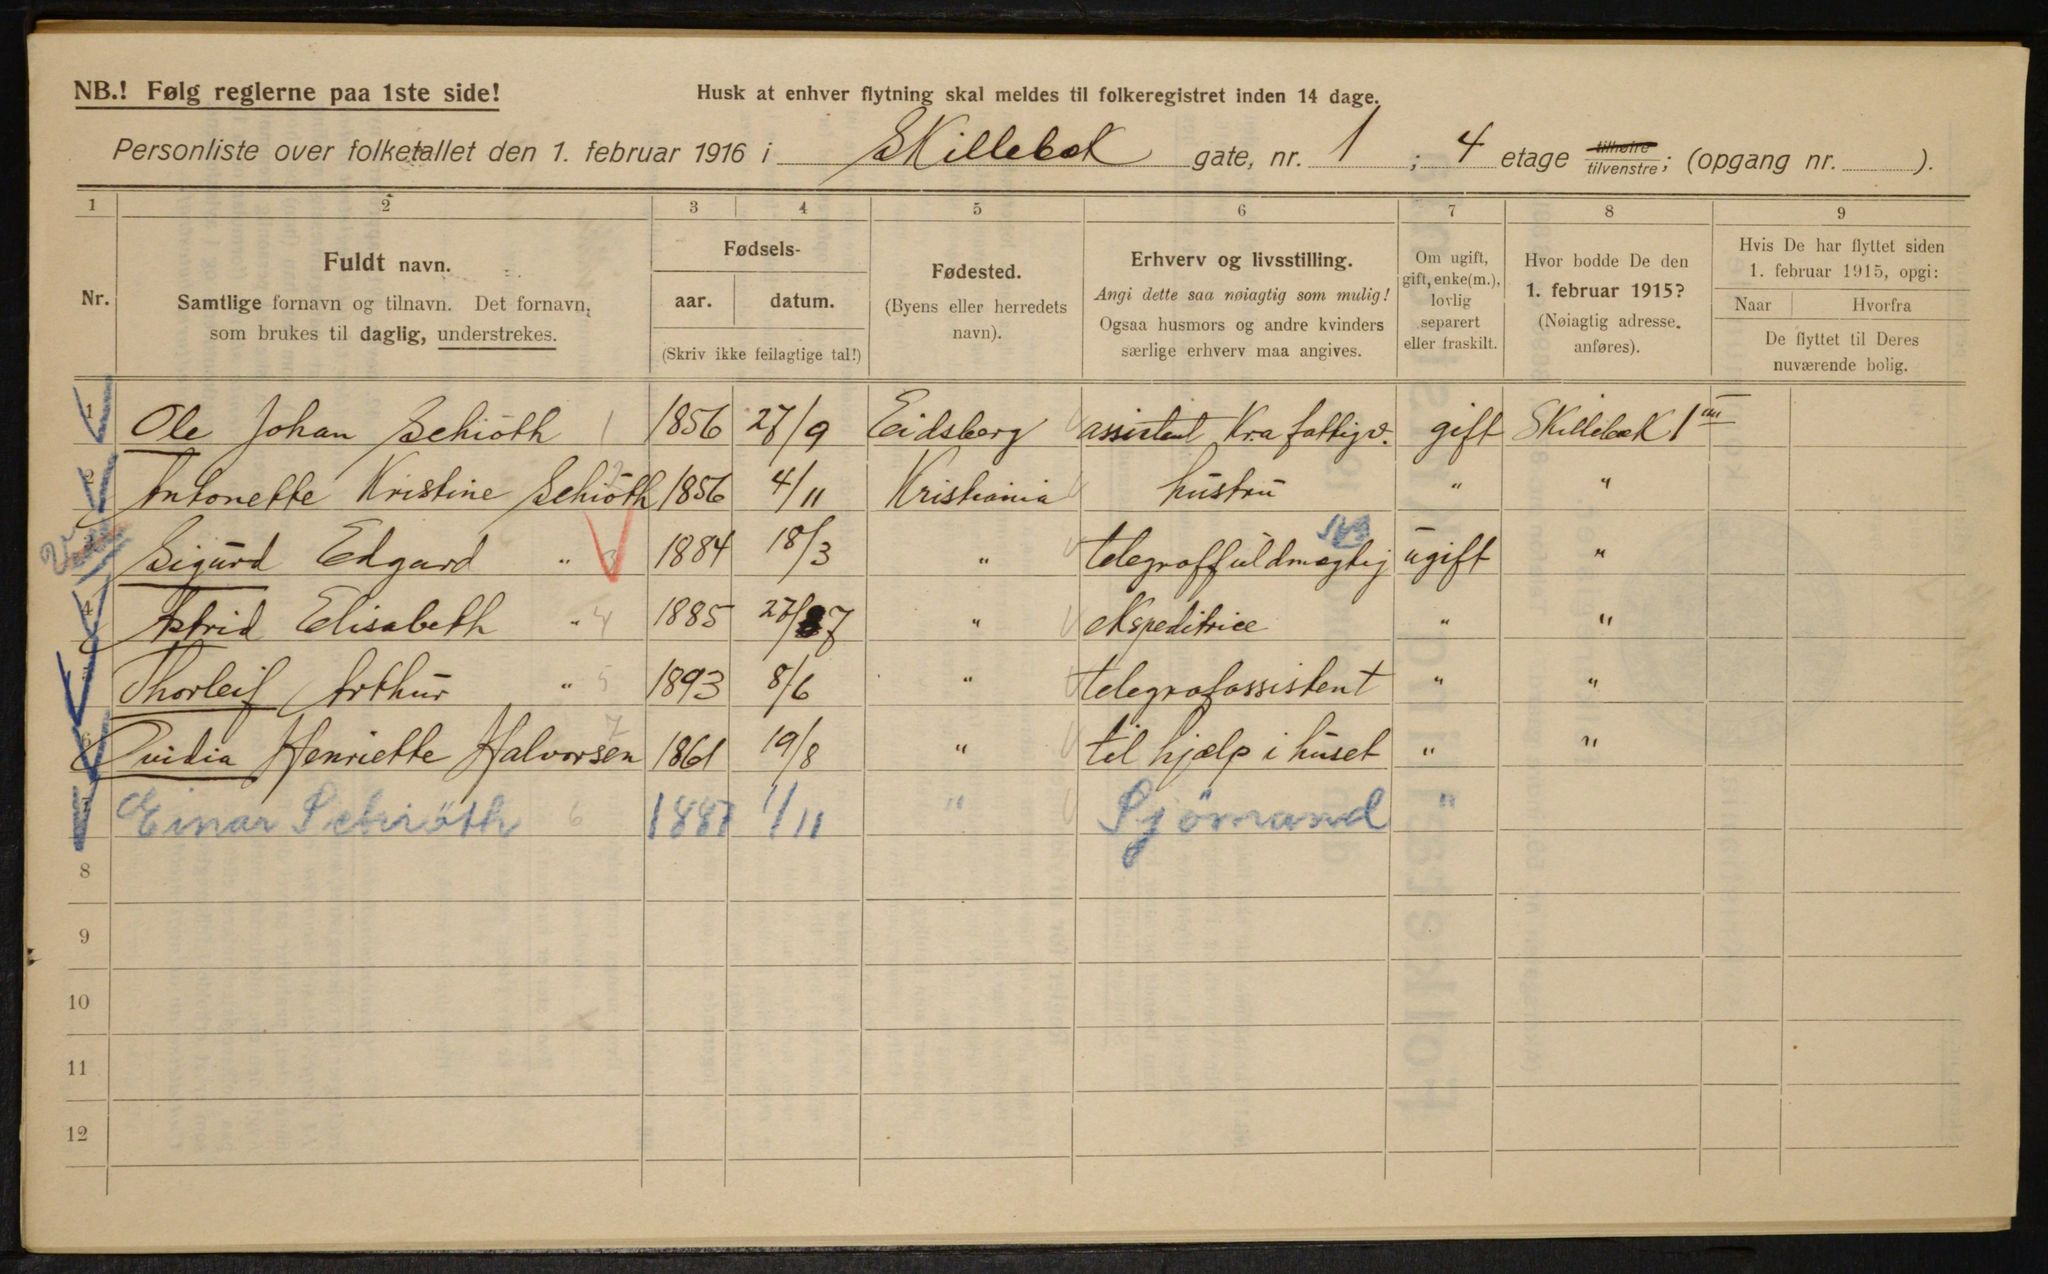 NB.! Følg reglerne paa 1ste side!
Husk at enhver flytning skal meldes til folkeregistret inden 14 dage.
Personliste over folketallet den 1. februar 1916 i Skillebek gate, nr. 1 ; 4 etage tilhøire tilvenstre; (opgang nr. ).
1 2 3 4 5 6 7 8 9
Nr.
Fuldt navn.
Samtlige fornavn og tilnavn. Det fornavn,
som brukes til daglig, understrekes.
Fødsels-
aar. datum.
(Skriv ikke feilagtige tal!)
Fødested.
(Byens eller herredets
navn).
Erhverv og livsstilling.
Angi dette saa nøiagtig som mulig!
Ogsaa husmors og andre kvinders
særlige erhverv maa angives.
Om ugift,
gift, enke(m.),
lovlig
separert
eller fraskilt.
Hvor bodde De den
1. februar 1915?
(Nøiagtig adresse.
anføres).
Hvis De har flyttet siden
1. februar 1915, opgi:
Naar Hvorfra
De flyttet til Deres
nuværende bolig.
1 Ole Johan Schiöth 1 1856 27/9 Eidsberg assistent Kra fattigv. gift Skillebek 1
2 Antonette Kristine Schiöth 2 1856 4/11 Kristiania hustru " "
3 Sigurd Edgard " 3 1884 18/3 " telegraffuldmægtig ugift "
4 Astrid Elisabeth " 4 1885 27/7 " ekspeditrice " "
5 Thorleif Arthur " 5 1893 8/6 " telegrafassistent " "
6 Ovidia Henriette Halvorsen 7 1861 19/8 " til hjælp i huset " "
7 Einar Schiöth 6 1887 1/11 " Sjömand "
8
9
10
11
12